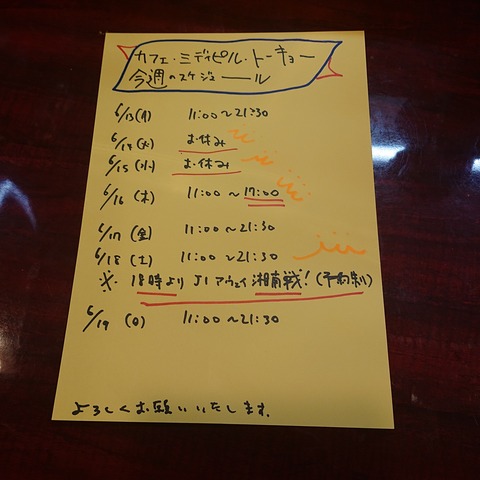 カフェ・ミディピル・トーキョー
今週のスケジュール
6/13(月) 11:00〜21:30
6/14(火) お休み
6/15(水) お休み
6/16(木) 11:00〜17:00
6/17(金) 11:00〜21:30
6/18(土) 11:00〜21:30
※ 18時より J1アウェイ湘南戦!(予約制)
6/19(日) 11:00〜21:30
よろしくお願いいたします。